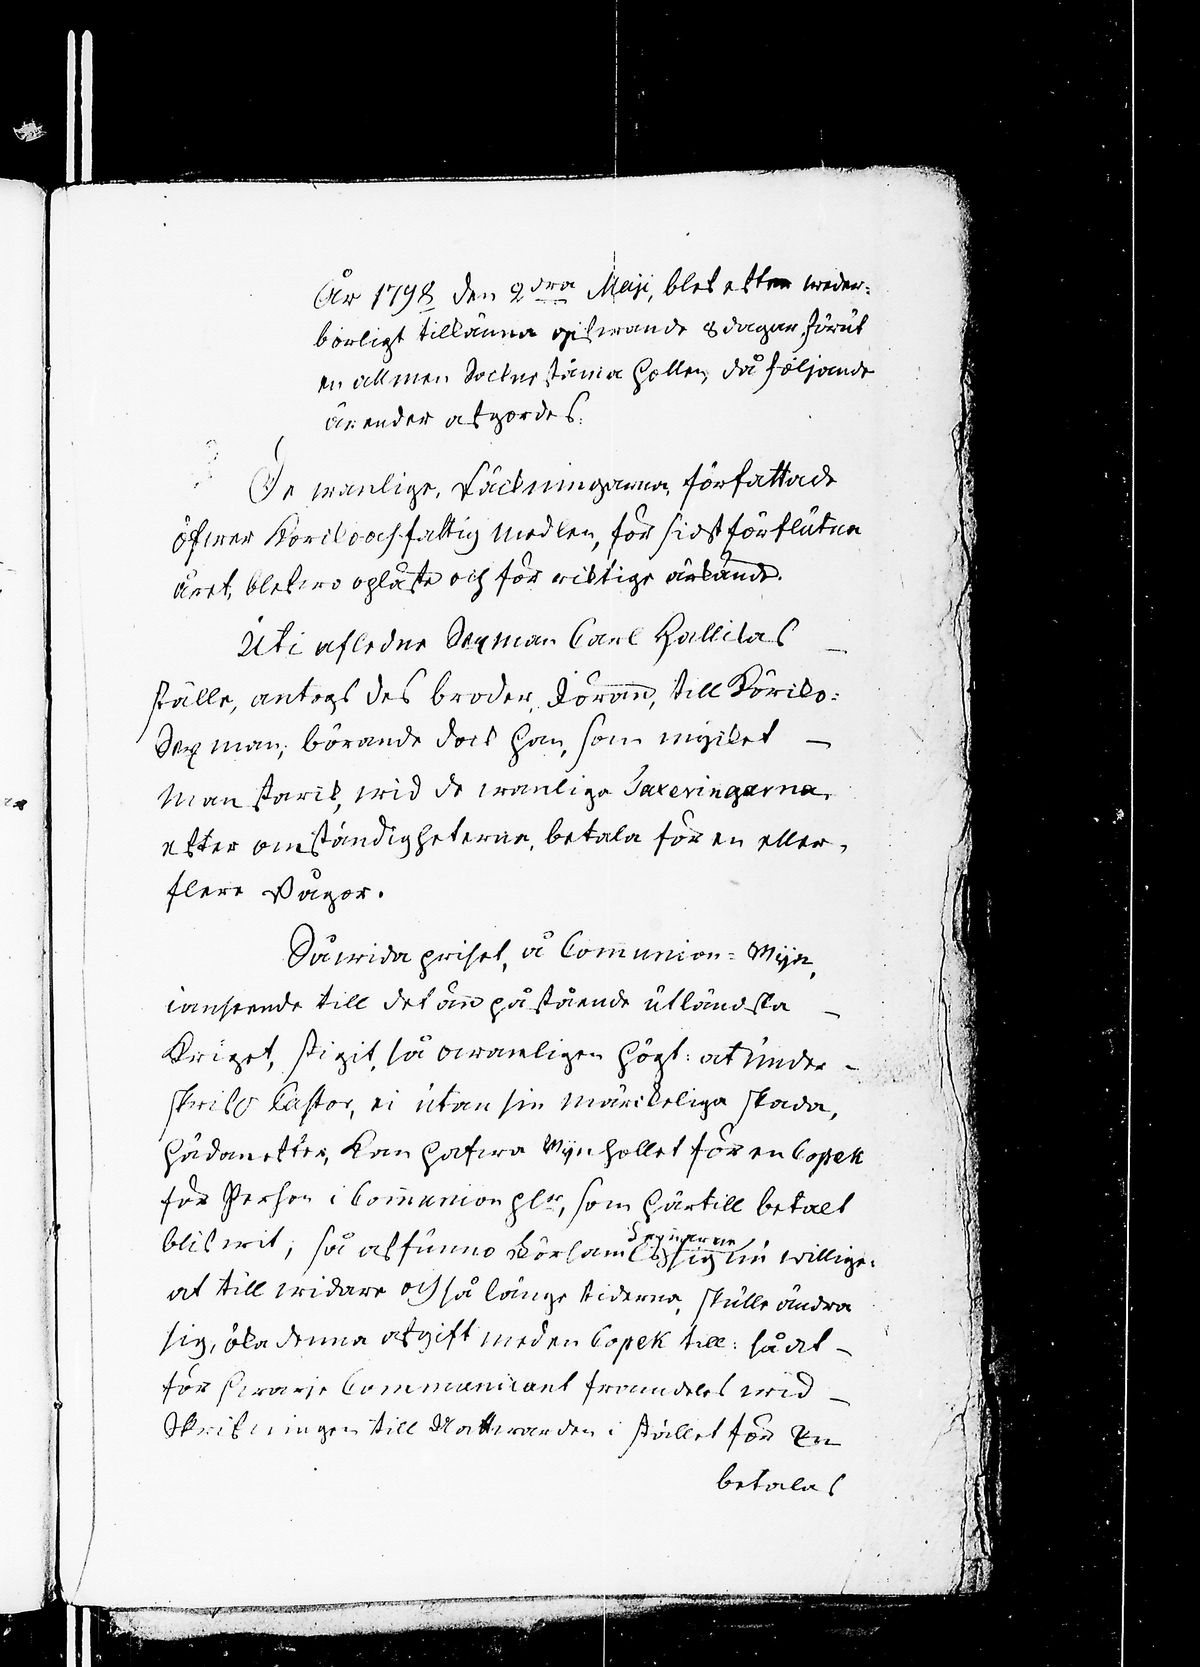 År 1798 den 2dra Maji, blef efter weder-
börligt tillkänna gifwande 8 dagar förut
en allmen Sockne stäma hållen, då följande
ärender afgordes:
De wanlige Räckningarna, författade
öfwer Körcko och fattig medlen, för sidst förflutna
året, blefwo opläste och för ricktige ärkände.
Uti afledne Sexman Carl Hallilas
ställe, antogs des broder, Göran, till Körcko-
Sexman; börande dock han, som mycket
man starck, wid de wanliga Taxeringarna
efter omständigheterne, betala för en eller
flere Rågor.
Såwida priset, å Communion-Wijn,
i anseende till det än påstående utländska
Kriget, stigit så owanligen högt: at under-
skrifw. Pastor, ei utan sin märckeliga skada,
hädanefter, kan hafwa Wijnhållet för en Copek
för Person i Communion plr, som härtill betalt
blifwit; så affunno Församl. Sexmännen sig nu willige
at till widare och så länge tiderna, skulle ändra
sig, öka denna afgift med en Copek till: så at
för hwarje Communicant framdeles wid
Skrifningen till Nattwarden i stället för en
betalas